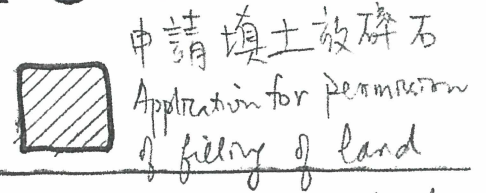 申請填土放碎石
Application for permission
of filling of land